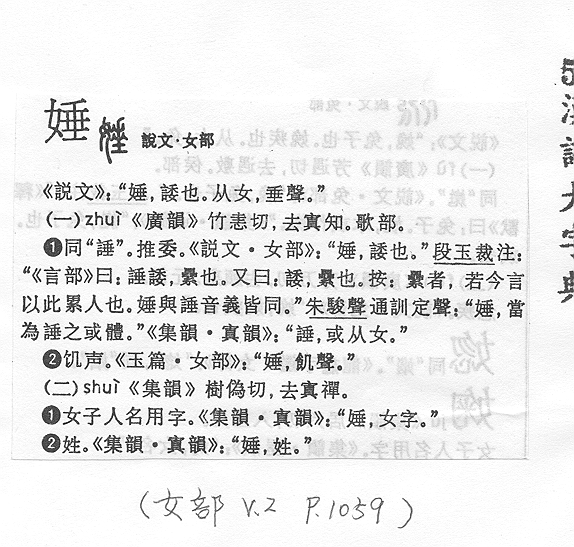 娷 說文·女部
《說文》：“娷，諉也。从女，垂聲。”
(一)zhuì《廣韻》竹恚切，去寘知。歌部。
❶同“諈”。推委。《說文·女部》：“娷，諉也。”段玉裁注：
“《言部》曰：諈諉，纍也。又曰：諉，纍也。按：纍者，若今言
以此累人也。娷與諈音義皆同。”朱駿聲通訓定聲：“娷，當
為諈之或體。”《集韻·寘韻》：“諈，或从女。”
❷饥声。《玉篇·女部》：“娷，飢聲。”
(二)shuì《集韻》樹偽切，去寘禪。
❶女子人名用字。《集韻·寘韻》：“娷，女字。”
❷姓。《集韻·寘韻》：“娷，姓。”
(女部 V.2 P.1059)
漢語大字典